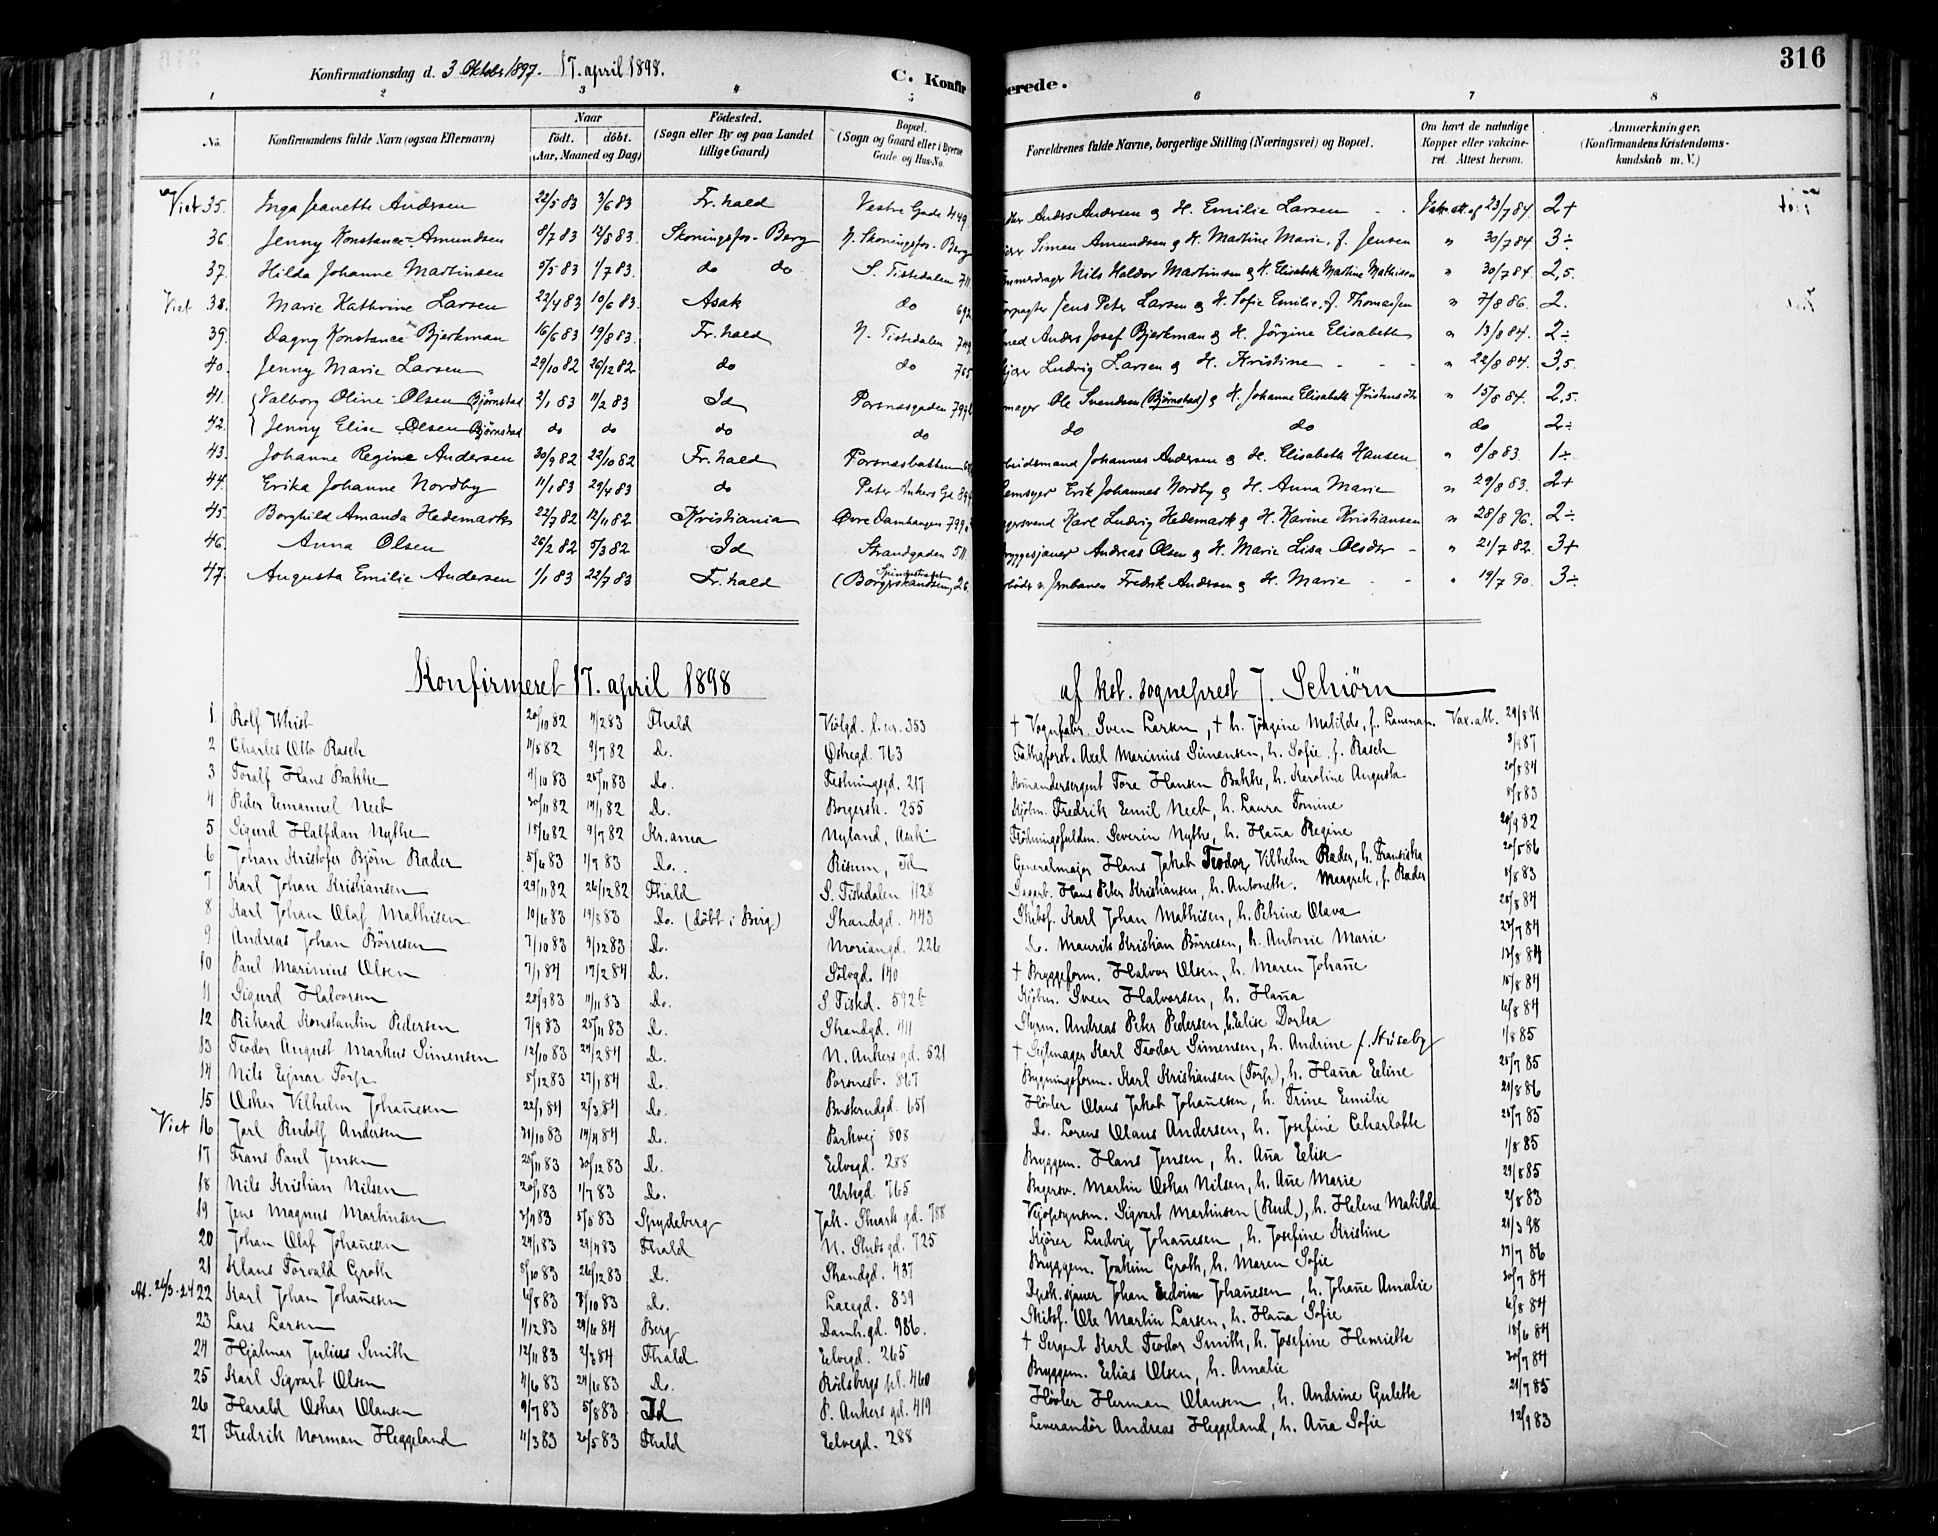 316
Konfirmationsdag d. 3 Oktobr 1897. 17. april 1898.
C. Konfir erede.
1 2 3 4 5 6 7 8
No. Konfirmandens fulde Navn (ogsaa Efternavn) Naar födt. döbt. (Aar, Maaned og Dag) Födested. (Sogn eller By og paa Landet tillige Gaard) Bopæl. (Sogn og Gaard eller i Byerne Gade og Hus-No. Forældrenes fulde Navne, borgerlige Stilling (Næringsvei) og Bopæl. Om havt de naturlige Kopper eller vakcineret. Attest herom. Anmærkninger. (Konfirmandens Kristendomskundskab m. V.)
Viet 35. Inga Jeanette Andersen 22/5 83 3/6 83 Fr.hald Vestre Gade 449 Anders Andersen g H. Emilie Larsen Vakc. att. af 23/7 84. 2+
36. Jenny Konstance Amundsen 8/7 83 12/8 83. Skoningsfos - Berg N. Skoningsfos - Berg Simen Amundsen g H. Martine Marie, f. Jensen " 30/7 84 3÷
37. Hilda Johanne Martinsen 5/5 83 1/7 83. do do S. Tistedalen 711 Nils Haldor Martinsen g H. Elisabeth Martine Mathisen " 30/7 84. 2,5.
Viet 38. Marie Kathrine Larsen 22/4 83 10/6 83. Asak do 692 Jens Peter Larsen g H. Sofie Emilie, f. Thomassen " 7/8 86. 2.
39. Dagny Konstance Bjerkman 16/6 83 19/8 83. Fr.hald N. Tistedalen 749 Anders Josef Bjerkman g H. Jörgine Elisabeth " 13/8 84. 2÷
40. Jenny Marie Larsen 29/10 82 26/12 82 do do 765 Ludvig Larsen g H. Kristine " 22/8 84. 3,5.
41. Valborg Oline Olsen Bjørnstad 2/1 83 11/2 83 Id Porsnesgaden Ole Svendsen (Bjørnstad) g H. Johanne Elisabeth " 15/8 84. 2,5.
42. Jenny Elise Olsen Bjørnstad do do do do do do do 2÷
43. Johanne Regine Andersen 30/9 82 22/10 82 Fr.hald Porsnesbakken Johannes Andersen g H. Elisabeth Hansen " 8/8 83. 1÷
44. Erika Johanne Nordby 11/1 83 29/4 83 do Peter Ankers Gd Erik Johannes Nordby g H. Anna Marie " 29/8 83. 2+
45. Borghild Amanda Hedemark 22/7 82 12/11 82 Kristiania Øvre Damhaugen 799 Karl Ludvig Hedemark g H. Karine Kristiansen " 28/8 96. 2÷
46. Anna Olsen 26/2 82 5/3 82 Id Strandgaden 511 Bryggesjauer Andreas Olsen g H. Marie Lisa Olsdtr " 21/7 82. 3+
47. Augusta Emilie Andersen 1/1 83 22/7 83 Fr.hald (Borgerskandsen) 26 Fredrik Andersen g H. Marie " 19/7 90. 3÷
Konfirmeret 17. april 1898 af kst. sogneprest J. Schiörn
1 Rolf Whist 20/10 82 4/2 83 Fhald Völgd. l. nr. 353 † Vognfabr. Sven Larsen, † h. Jörgine Matilde, f. Vax. att.
2 Charles Otto Rasch 11/5 82 9/7 82 Do. Ostregd. 763 Fattigforst. Axel Marinius Simensen, h. Sofie f. Rasch
3 Toralf Hans Bakke 4/10 83 25/11 83 Do. Festningsgd. 217 Komandersergent Tore Hansen Bakke, h. Karoline Augusta 20/8 84
4 Peder Emanuel Neeb 30/11 82 Do. Borgersk. 255 Kjöbm. Fredrik Emil Neeb, h. Laura Tomine 8/8 83
5 Sigurd Halfdan Nythe 18/6 82 9/7 82 Kr.ania Nyland, Asak Severin Nythe, h. Hanna Regine 20/9 82
6 Johan Kristofer Björn Rader 5/6 83 1/7 83 Do. Risum, Id Generalmajor Hans Jakob Teodor Vilhelm Rader, h. Fransiska Margrete, f. Rader 20/5 86
7 Karl Johan Kristiansen 29/11 82 26/12 82 Fhald S. Tistedalen 1128 Sagarb. Hans Peter Kristiansen, h. Antonette. 8/8 83
8 Karl Johan Olaf Mathisen 10/6 83 19/8 83 Do. (döbt i Berg) Strandgd. 443 Skibsf. Karl Johan Mathisen, h. Petrine Olava 25/8 84
9 Andreas Johan Börresen 7/10 83 9/12 83 Do. Moriangd. 226 Do. Maurits Kristian Börresen, h. Antonie Marie 23/7 84
10 Paul Marinius Olsen 7/1 84 17/2 84 Do. Sölvgd. 140 † Bryggeform. Halvor Olsen, h. Maren Johanne 13/8 84
11 Sigurd Halvorsen 20/9 83 11/11 83 Do. S Tistd. 592b Kjöbm. Sven Halvorsen, h. Hanna 15/8 84
12 Rikard Konstantin Pedersen 7/9 83 25/11 83 Do. Strandgd. 411 Styrm. Andreas Peter Pedersen, h. Elise Dorthea 6/8 84
13 Teodor August Markus Simensen 12/10 83 24/2 84 Do. N. Ankers gd. 521 † Seilmager Karl Teodor Simensen, h. Andrine f. Huseby 1/8 85
14 Nils Ejnar Torp 5/12 83 27/1 84 Do. Porsnesb. 867 Bygningsform. Karl Kristiansen (Torp), h. Hanna Eline 25/7 85
15 Oskar Vilhelm Johannesen 22/1 84 2/3 84 Do. Buskerudgd. 651 Hövler Olaus Jakob Johannesen, h. Trine Emilie 21/8 86
Viet 16 Jarl Rudolf Andersen 31/10 83 14/4 84 Do. Parkvej 808 Do. Lorens Olaus Andersen, h. Josefine Charlotte 25/7 85
17 Frans Paul Jensen 25/11 83 30/12 83 Do. Elvegd. 288 Bryggem. Hans Jensen, h. Anna Elise 1/8 85
18 Nils Kristian Nilsen 20/1 83 1/7 83 Do. Urtegd. 765 Bagersv. Martin Oskar Nilsen, h. Anne Marie 29/8 85
19 Jens Magnus Martinsen 3/4 83 5/5 83 Spydeberg Jak. Stuarts gd. 788 Sigvart Martinsen (Rud.), h. Helene Matilde 2/8 83
20 Johan Olaf Johannesen 24/1 83 29/4 83 Fhald N. Stubs gd. 725 Kjörer Ludvig Johannesen, h. Josefine Kristine 21/3 98
21 Klaus Torvald Groth 8/10 83 26/12 83 Do. Strandgd. 437 Bryggem. Joakim Groth, h. Maren Sofie 17/7 86
At. 24/3-24 22 Karl Johan Johannesen 4/8 83 8/10 83 Do. Laregd. 839 Johan Edvin Johannesen, h. Johanne Amalie 30/7 84
23 Lars Larsen 1/12 83 29/6 84 Berg Damh. gd. 986. Skibsf. Ole Martin Larsen, h. Hanna Sofie 6/8 84
24 Hjalmar Julius Smith 12/11 83 2/3 84 Fhald Elvegd. 265 † Sergent Karl Teodor Smith, h. Josefine Henriette 18/6 84
25 Karl Sigvart Olsen 4/6 83 24/6 83 Do. Rödsbergs pl. 460 Bryggem. Elias Olsen, h. Amalie 30/7 84
26 Harald Oskar Olausen 9/7 83 5/8 83 Id P. Ankers gd. 419 Hövler Herman Olausen, h. Andrine Gulette 21/7 85
27 Fredrik Norman Heggeland 11/3 83 20/5 83 Fhald Elvegd. 288 Leverandör Andreas Heggeland, h. Anna Sofie 12/9 83